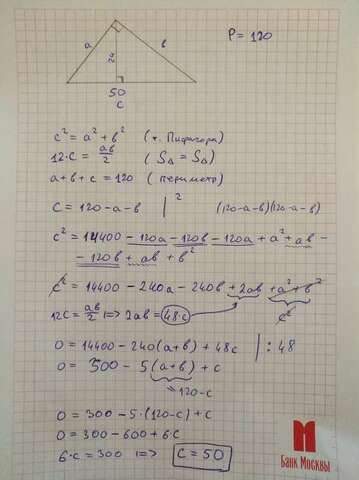 P = 120
a
b
24
50
c
c² = a² + b² (т. Пифагора)
12·c = ab/2 (S△ = S△)
a+b+c = 120 (периметр)
c = 120-a-b |² (120-a-b)(120-a-b)
c² = 14400 - 120a - 120b - 120a + a² + ab -
- 120b + ab + b²
c² = 14400 - 240a - 240b + 2ab + a² + b²
12c = ab/2 |=> 2ab = 48·c
c²
0 = 14400 - 240(a+b) + 48c | : 48
0 = 300 - 5(a+b) + c
=120-c
0 = 300 - 5·(120-c) + c
0 = 300 - 600 + 6·c
6·c = 300 |=> c = 50
Банк Москвы